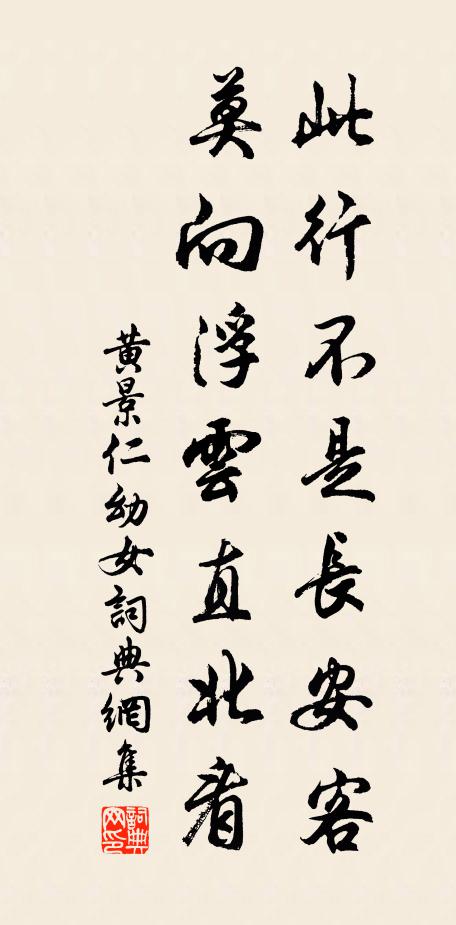 此行不是長安客
莫向浮雲直北看
黄景仁幼女詞典網集
詞典网印